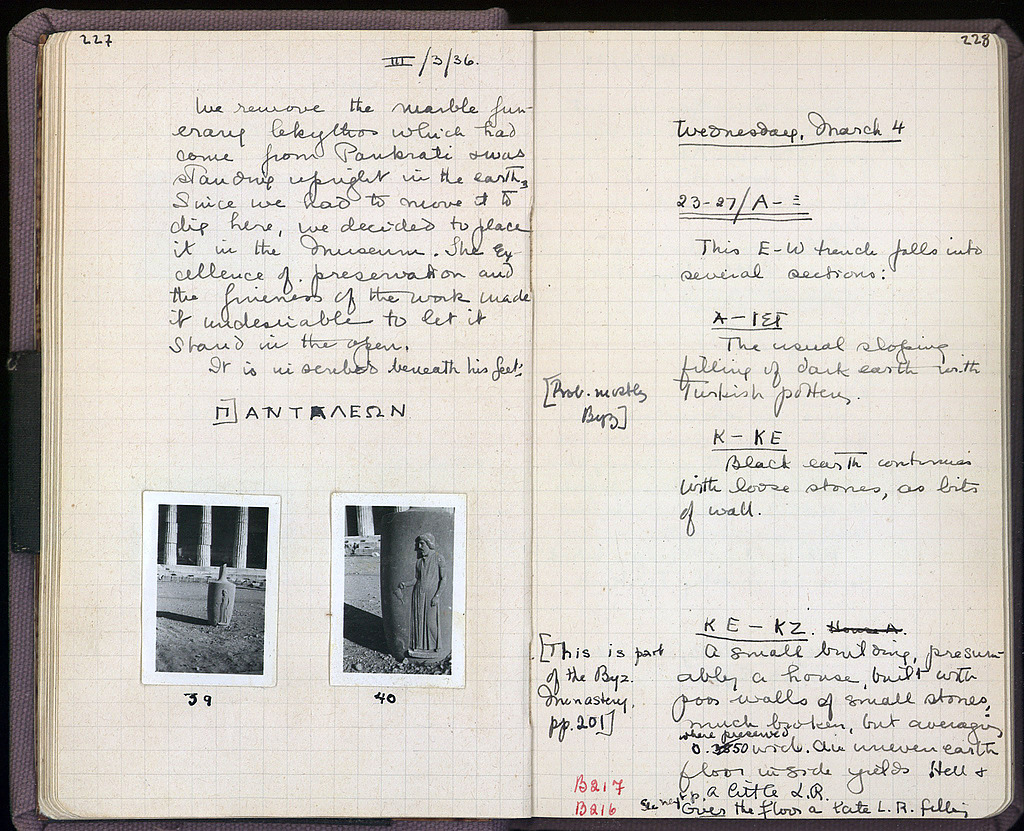 227
III/3/36.
We remove the marble fun-
erary lekythos which had
come from Pankrati & was
standing upright in the earth.
Since we had to move it to
dig here, we decided to place
it in the Museum. The ex-
cellence of preservation and
the fineness of the work made
it undesirable to let it
stand in the open.
It is inscribed beneath his feet:
[Π]ΑΝΤΑΛΕΩΝ
39
40
228
Wednesday, March 4
23-27/Α-Ξ
This E-W trench falls into
several sections:
Α-ΙΣΤ
The usual sloping
filling of dark earth with
Turkish pottery.
[Prob. mostly
Byz]
Κ-ΚΕ
Black earth continues
with loose stones, as bits
of wall.
ΚΕ-ΚΖ. House A.
[This is part
of the Byz.
Monastery,
pp. 201]
A small building, presum-
ably a house, built with
poor walls of small stones,
much broken, but averaging
where preserved
0.50 wide. An uneven earth
floor inside yields Hell &
a little L.R.
B217
B216
See next p.
Over the floor a late L.R. filling